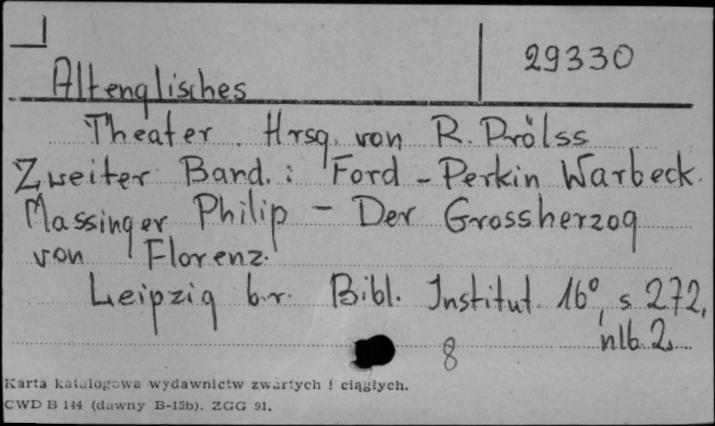 29330
Altenglisches
Theater. Hrsg. von R. Prölss
Zweiter Band. : Ford - Perkin Warbeck.
Massinger Philip - Der Grossherzog
von Florenz.
Leipzig b.r. Bibl. Institut 16°, s. 272,
nlb. 2.
8
Karta katalogowa wydawnictw zwartych i ciągłych.
CWD B 144 (dawny B-15b). ZGG 91.